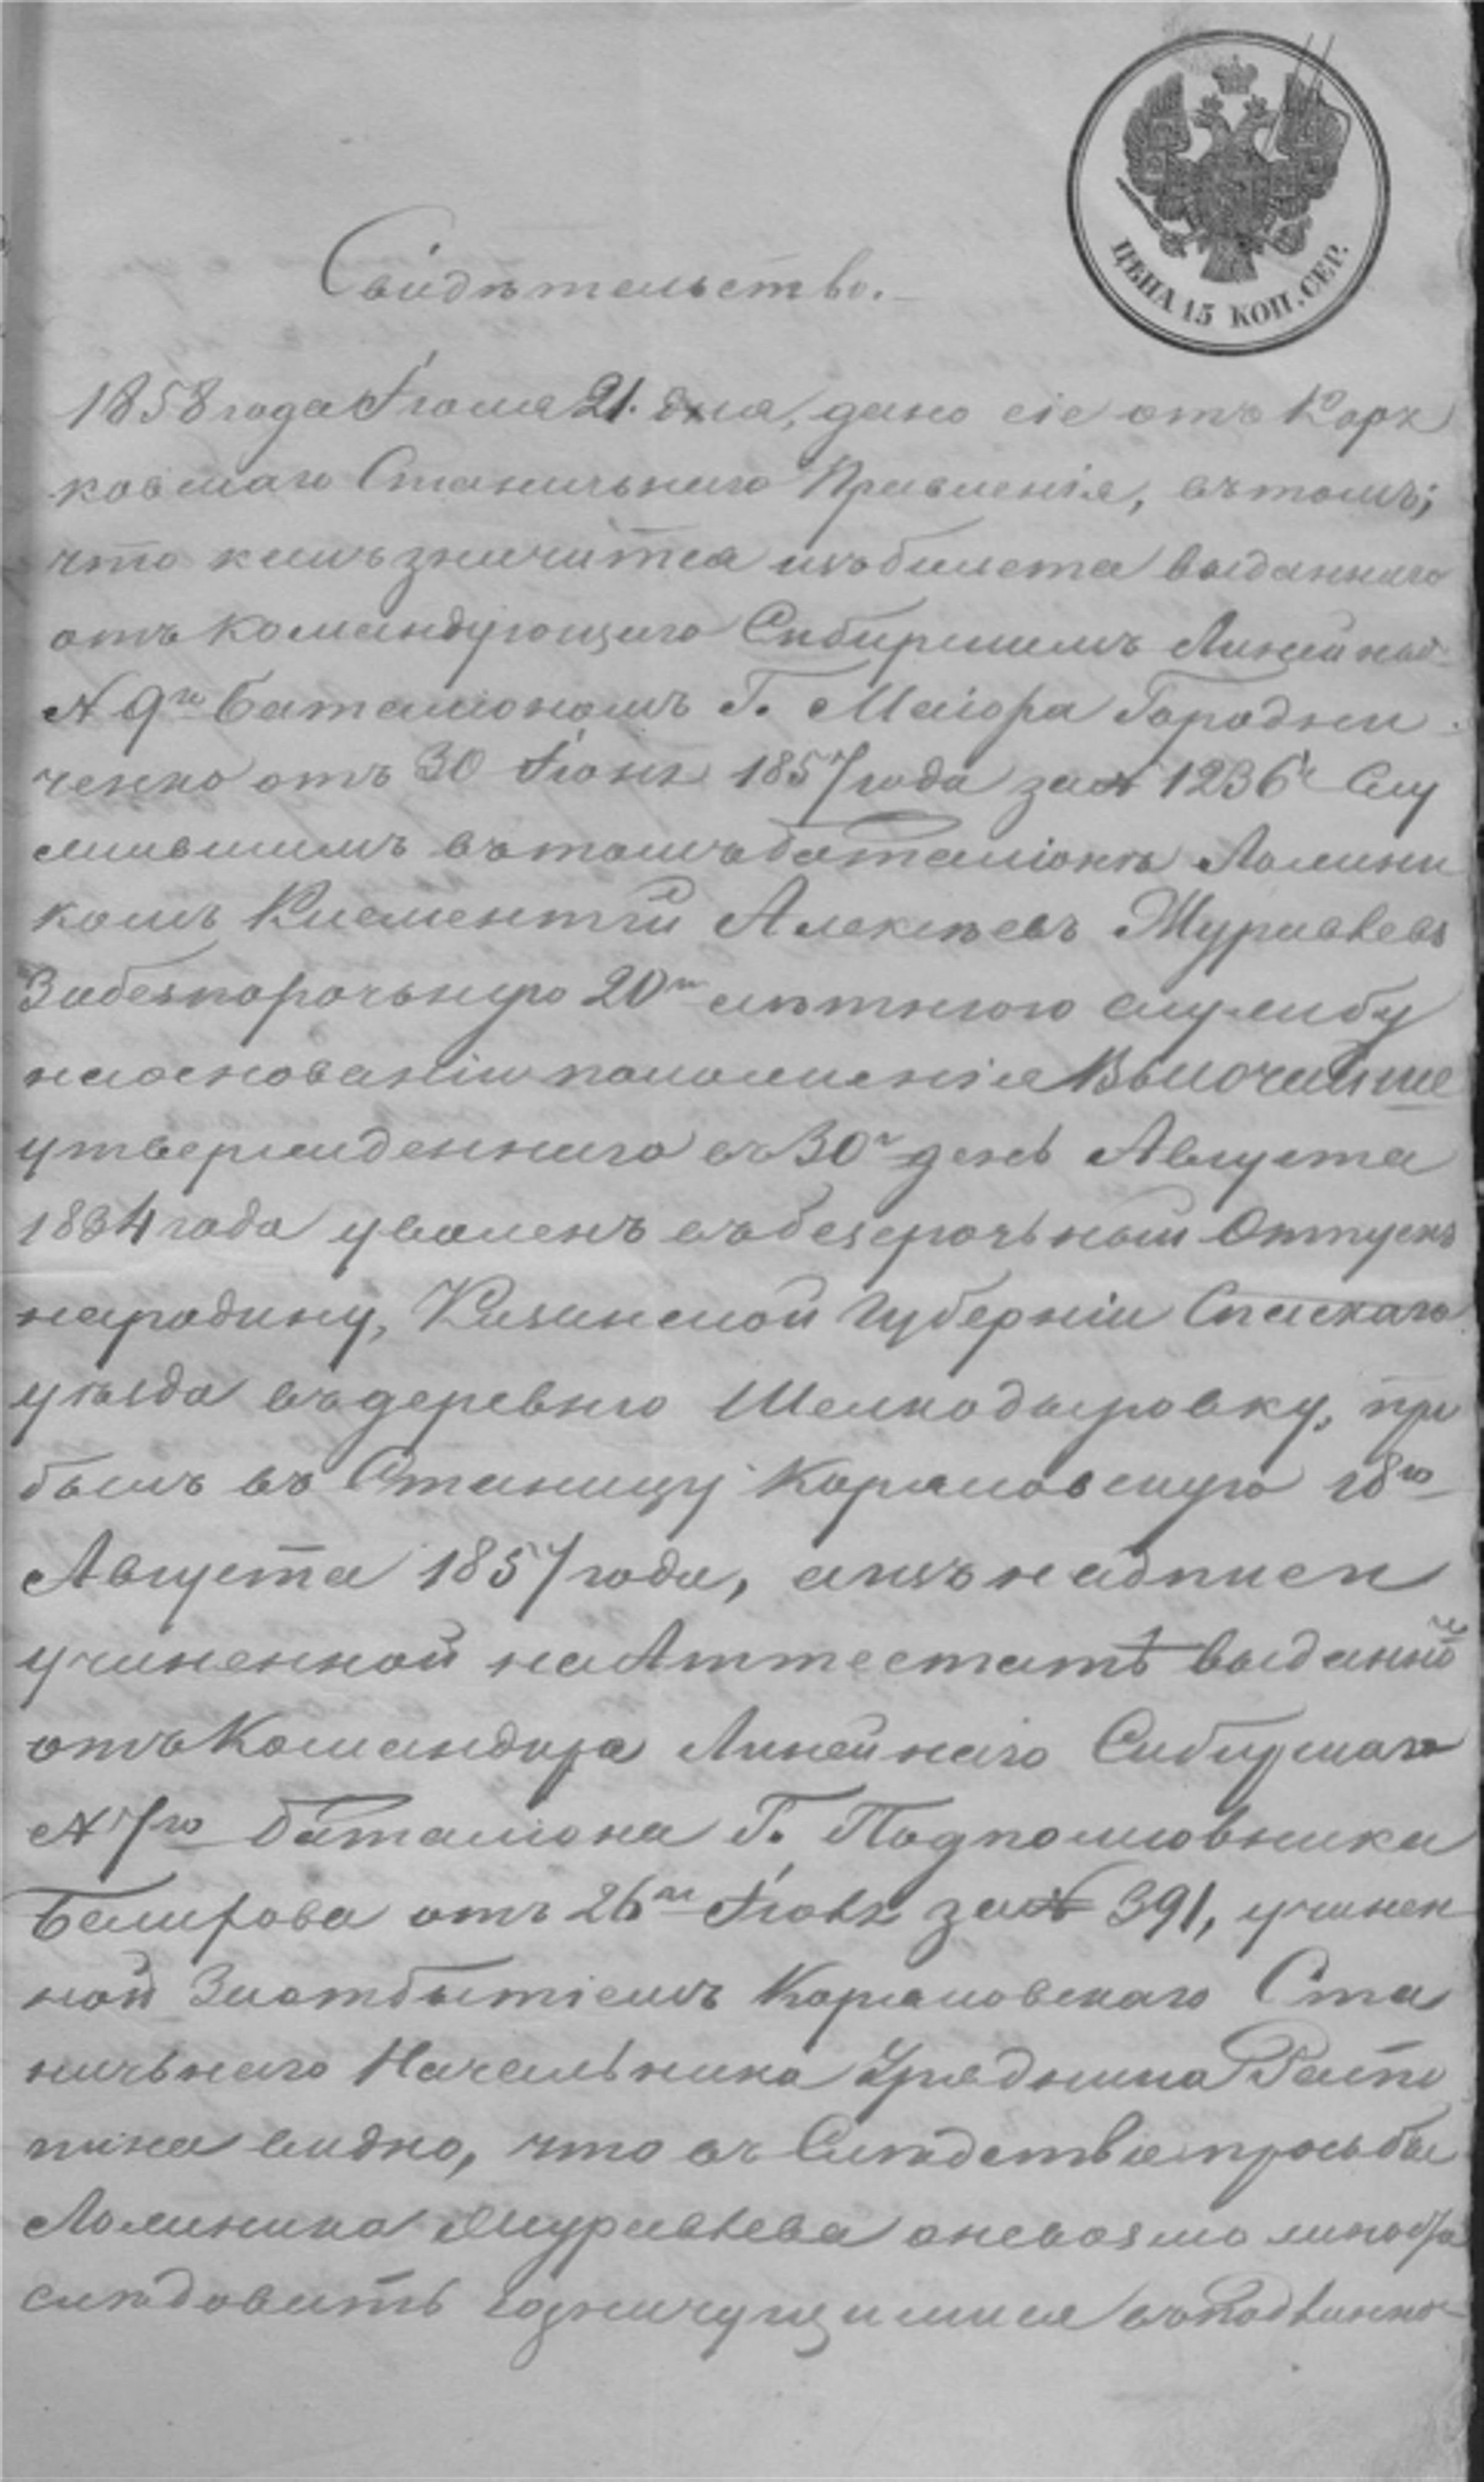 ЦѢНА 15 КОП. СЕР.
Свидѣтельство.
1858 года Іюля 21. дня, дано сіе отъ
Станичьнаго Правленія, въ томъ;
что какъ значится изъ билета выданнаго
отъ командующаго Сибирскимъ Линейнымъ
№ 9м баталіономъ Г. Маіора Городни
ченко отъ 30 Іюня 1857 года за № 1236м Слу
жившимъ въ томъ баталіонѣ
Клементій Алексѣевъ Журавлевъ
За безпорочьную 20ти лѣтнюю службу
на основаніи положенія Высочайше
утвержденнаго въ 30й день Августа
1834 года уволенъ въ безсрочьный Отпускъ
на родину, Казанской Губерніи Спаскаго
уѣзда въ деревню Шелкодыровку, при
былъ въ Станицу 18го
Августа 1857 года, а изъ надписи
учиненной на Аттестатѣ выданной
отъ Командира Линейнаго Сибирскаго
№ 7го баталіона Г. Подполковника
отъ 26го за № 391, учинен
ной За отбытіемъ Ста
ничьнаго Начальника Урядника
видно, что въ Слѣдствіе просьбы
Журавлева о невозможности
слѣдовать